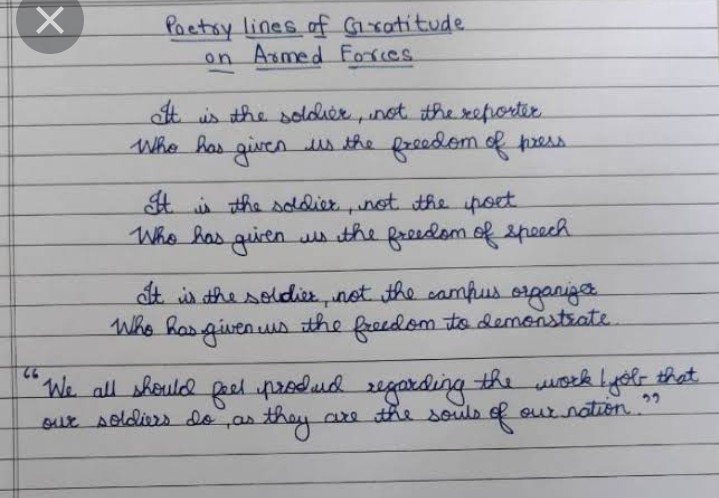 Poetry lines of Gratitude
on Armed Forces
It is the soldier, not the reporter
Who has given us the freedom of press
It is the soldier, not the poet
Who has given us the freedom of speech
It is the soldier, not the campus organiger
Who has given us the freedom to demonstrate.
“We all should feel produd regarding the work/job that
our soldiers do, as they are the souls of our nation.”